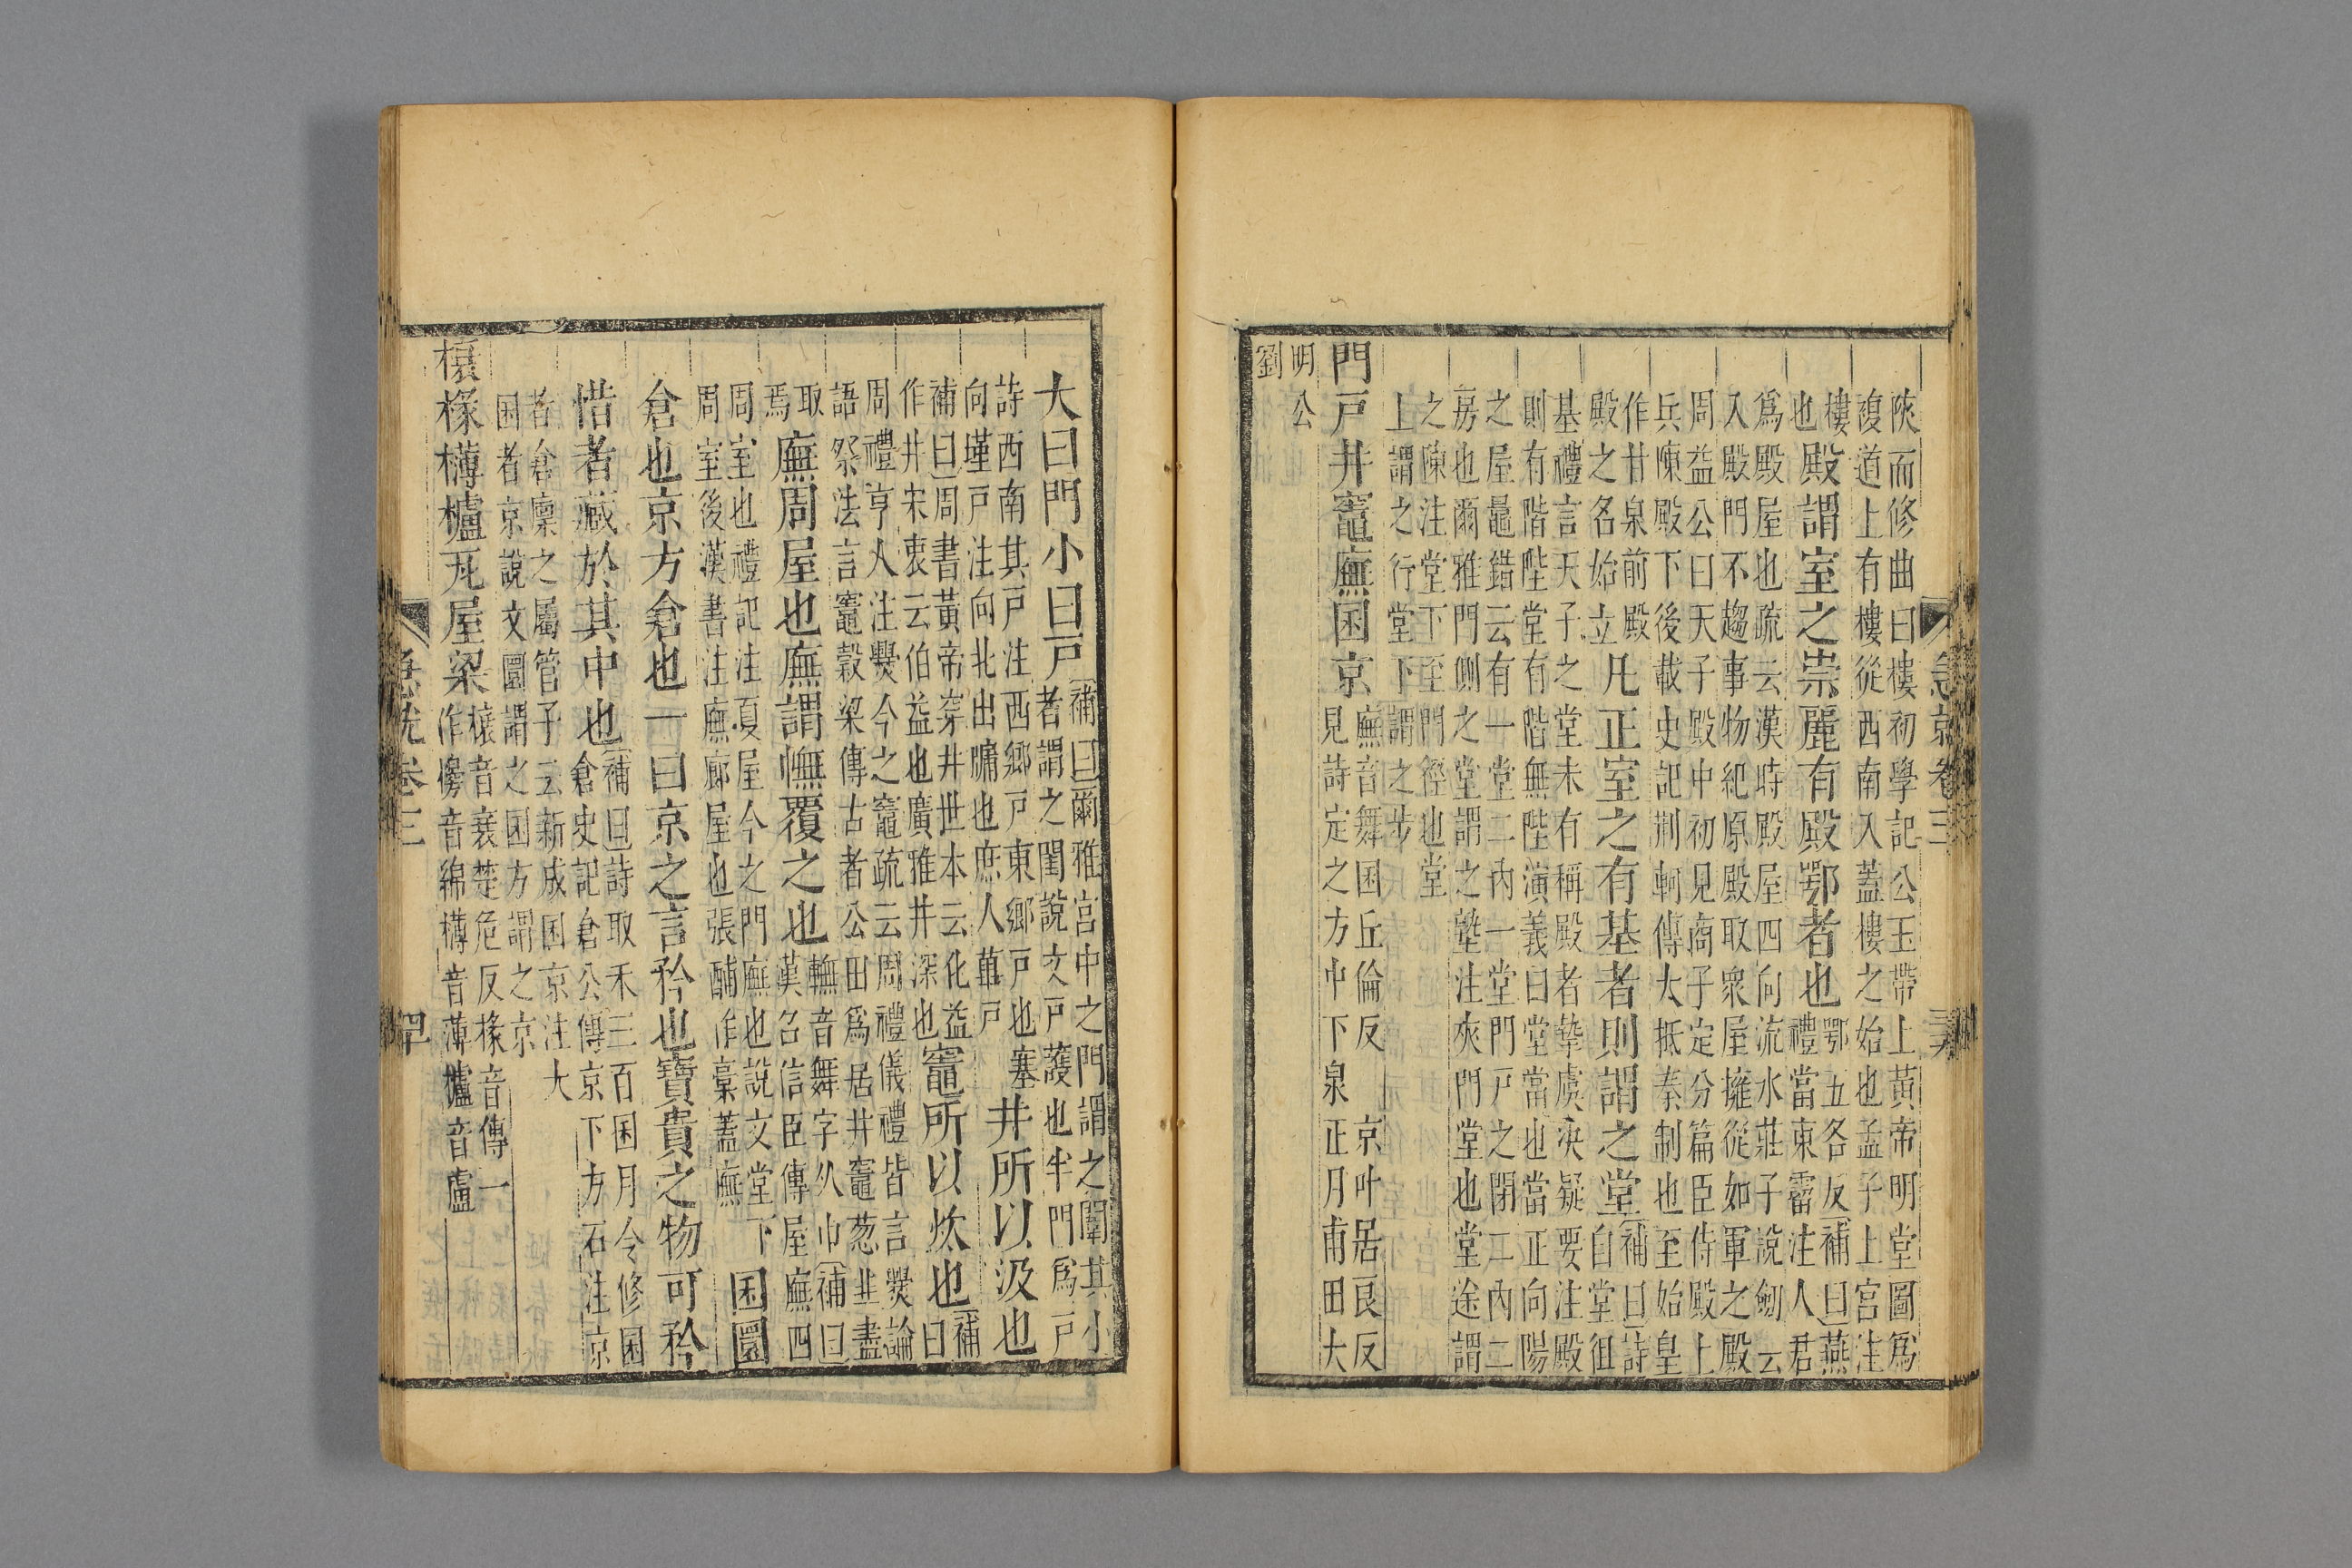 陜而修曲曰樓初學記公玉帶上黃帝明堂圖爲
複道上有樓從西南入蓋樓之始也孟子上宮注
樓
也
殿謂室之崇麗有殿鄂者也
鄂五各反補曰燕
禮當東霤注人君
爲殿屋也疏云漢時殿屋四向流水莊子說劒云
入殿門不趨事物紀原殿取衆屋擁從如軍之殿
周益公曰天子殿中初見商子定分篇臣侍殿上
兵陳殿下後載史記荆軻傳大抵秦制也至始皇
作甘泉前殿
殿之名始立
凡正室之有基者則謂之堂
補曰詩
自堂徂
基禮言天子之堂未有稱殿者摯虞決疑要注殿
則有階陛堂有階無陛演義曰堂當也當正向陽
之屋鼂錯云有一堂二內一堂門戸之閉二內二
房也爾雅門側之堂謂之塾注夾門堂也堂途謂
之陳注堂下至門徑也堂
上謂之行堂下謂之步
門戸井竈廡囷京
廡音舞囷丘倫反 京叶居良反
見詩定之方中下泉正月甫田大
明公
劉
急就卷三
大曰門小曰戸
補曰爾雅宮中之門謂之闈其小
者謂之閨說文戸護也半門爲戸
詩西南其戸注西鄉戸東鄉戸也塞
向墐戸注向北出牖也庶人蓽戸
井所以汲也
補曰周書黃帝穿井世本云化益
作井宋衷云伯益也廣雅井深也
竈所以炊也
補
曰
周禮亨人注爨今之竈疏云周禮儀禮皆言爨論
語祭法言竈榖梁傳古者公田爲居井竈葱韭盡
取
焉
廡周屋也廡謂幠覆之也
幠音舞字从巾補曰
漢召信臣傳屋廡四
周室也禮記注夏屋今之門廡也說文堂下
周室後漢書注廡廊屋也張酺作槀蓋廡
囷圜
倉也京方倉也一曰京之言矜也寶貴之物可矜
惜者藏於其中也
補曰詩取禾三百囷月令修囷
倉史記倉公傳京下方石注京
者倉廩之屬管子云新成囷京注大
囷者京說文圜謂之囷方謂之京
榱椽欂櫨瓦屋梁
榱音衰楚危反椽音傳一
作㯠音綿欂音薄櫨音盧
急就卷三